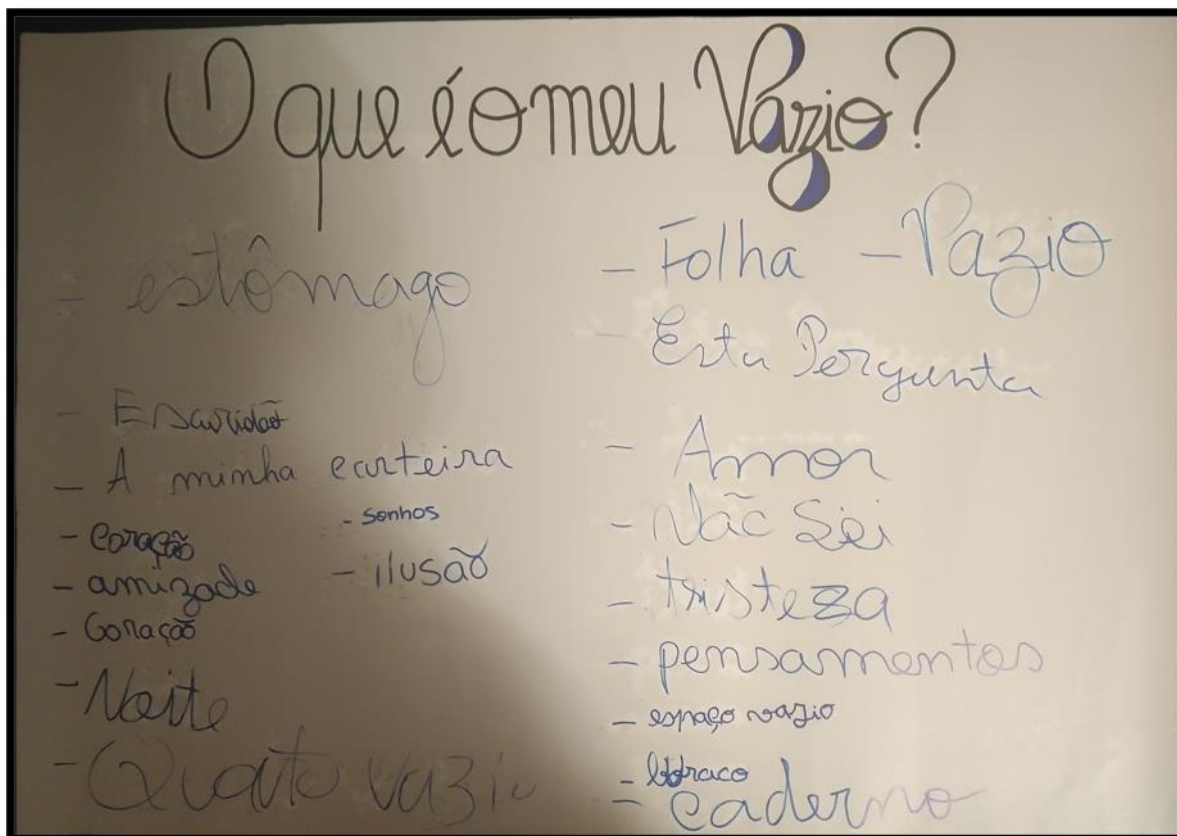 O que é o meu Vazio?
- estômago
- Escuridão
- A minha carteira
- Coração
- sonhos
- amizade
- ilusão
- Coração
- Noite
- Quato vazio
- Folha - Vazio
- Esta Pergunta
- Amor
- Não Sei
- tristeza
- pensamentos
- espaço vazio
- buraco
- caderno